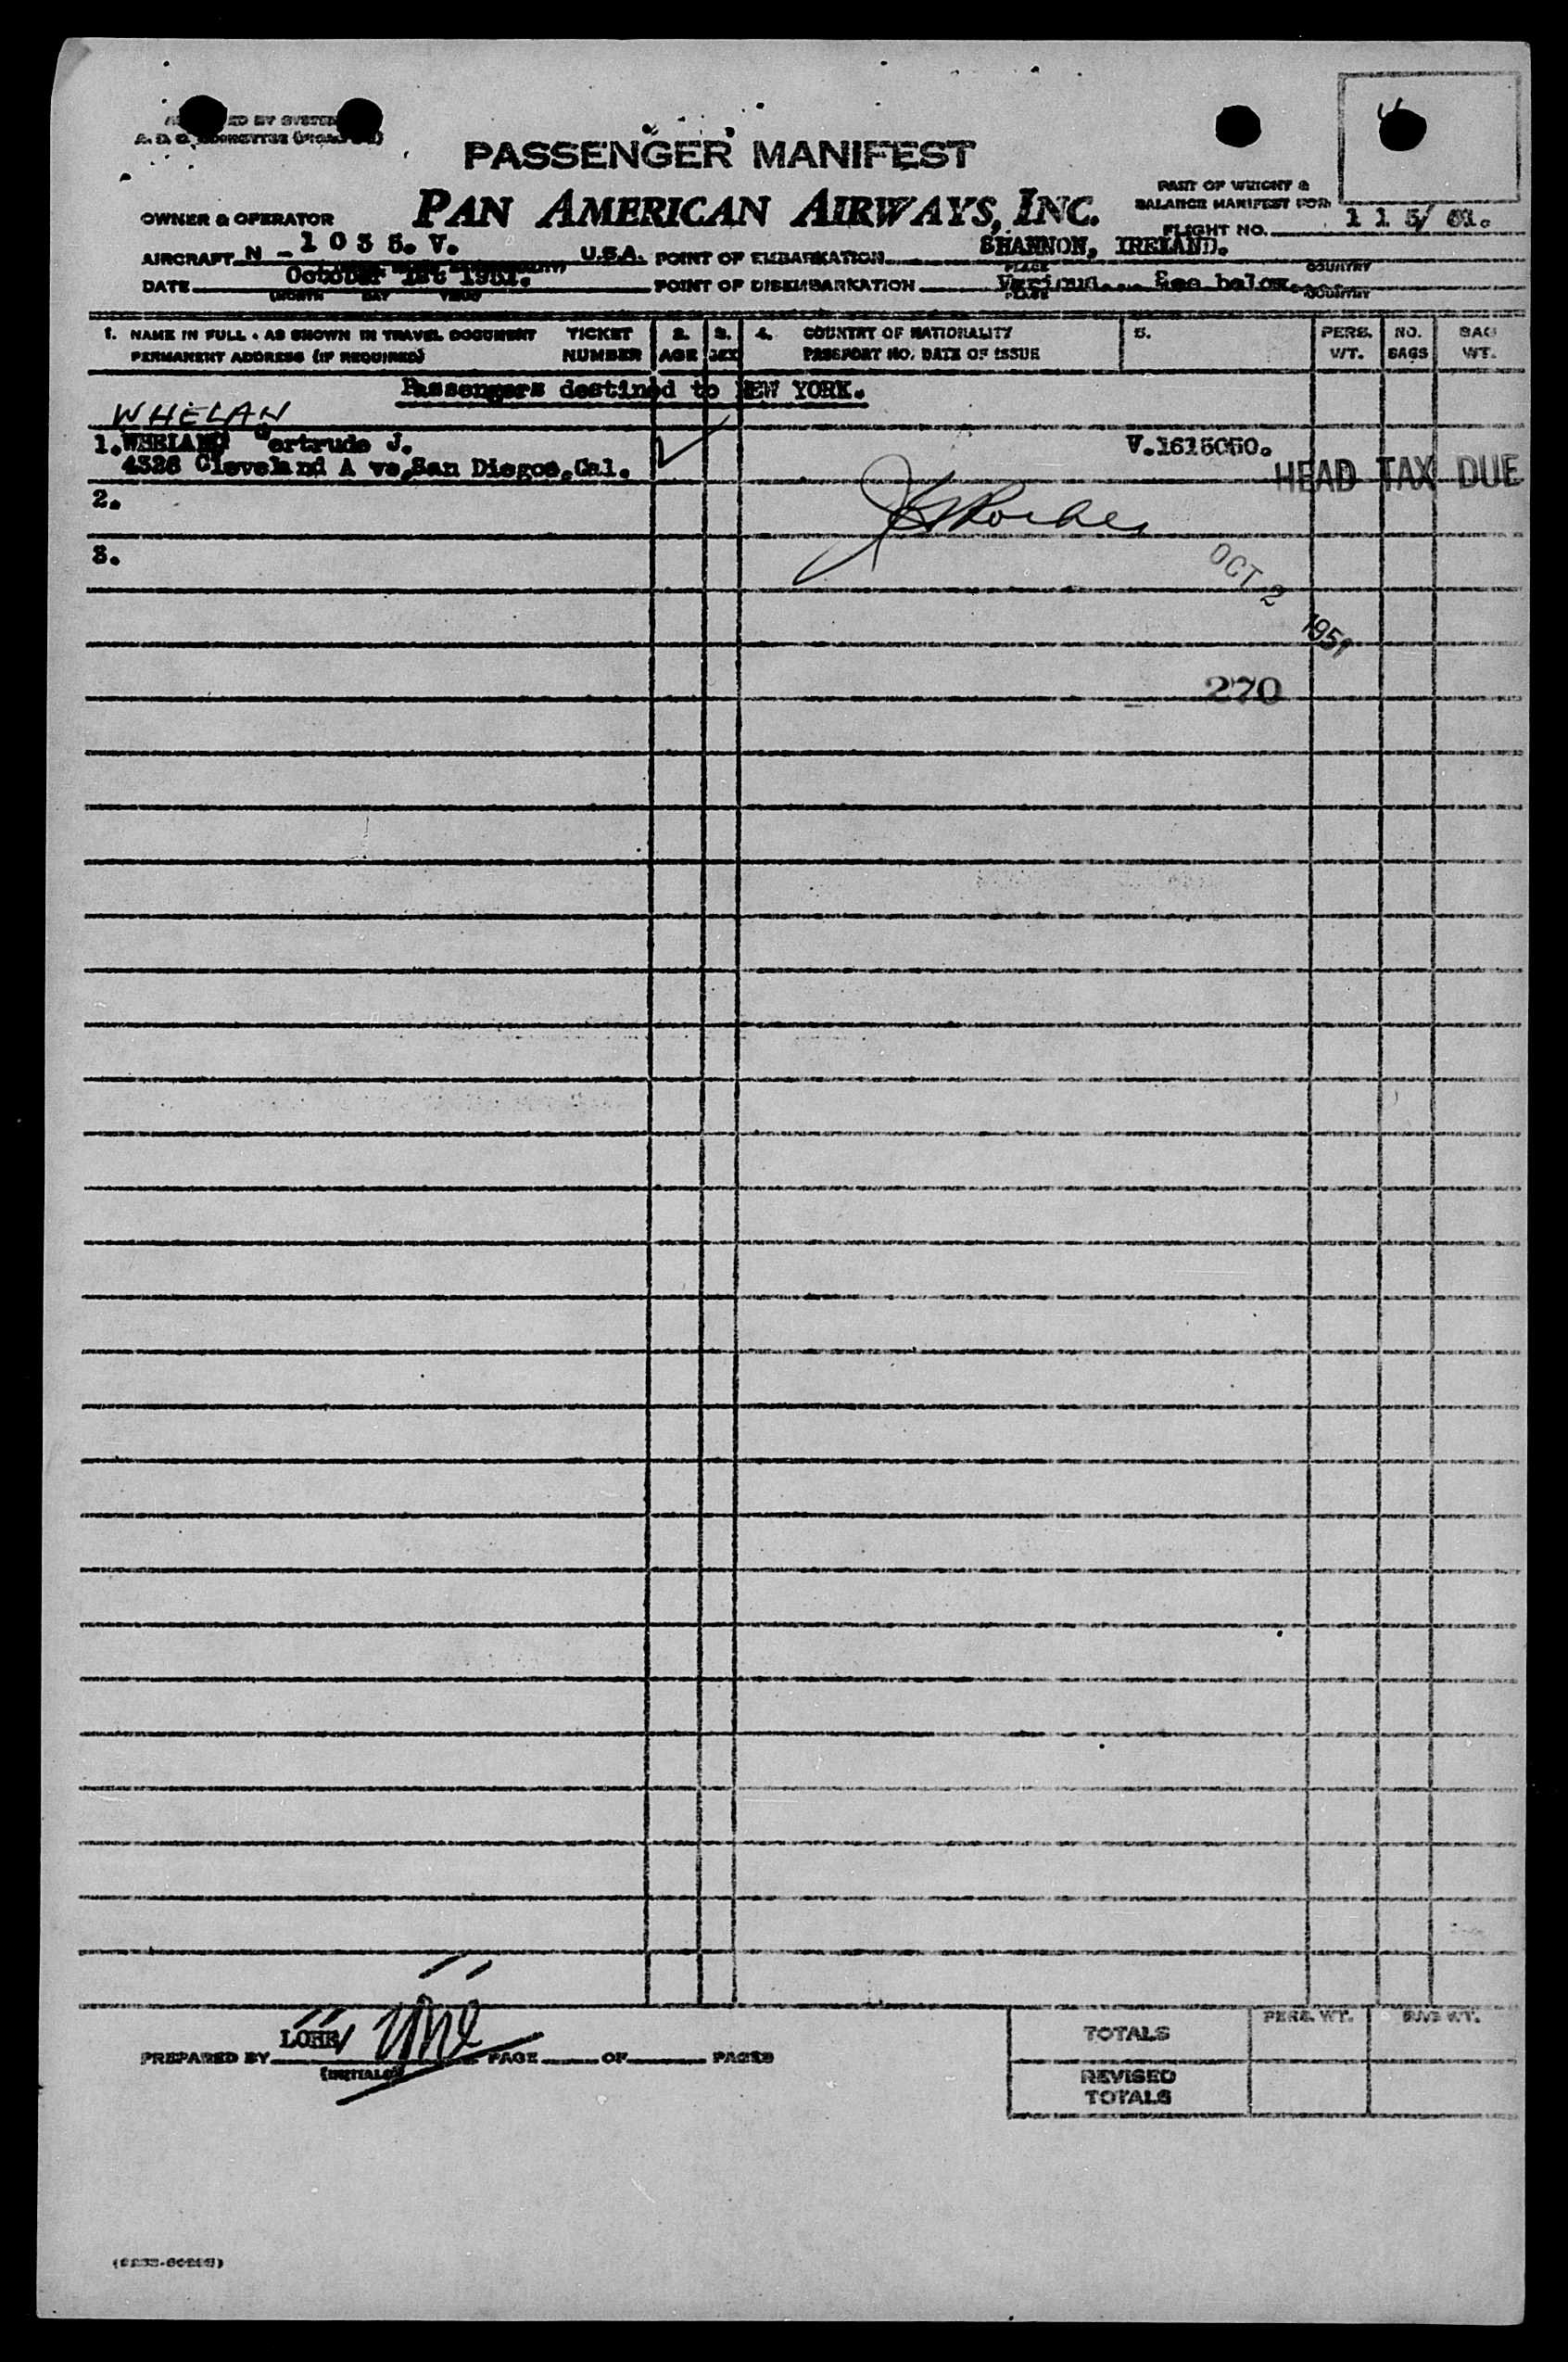 PASSENGER MANIFEST
PAN AMERICAN AIRWAYS, INC.
PART OF WEIGHT &
BALANCE MANIFEST FOR
OWNER & OPERATOR
FLIGHT NO. 115/
AIRCRAFT N - 1 0 3 5. V. U.S.A. POINT OF EMBARKATION SHANNON, IRELAND.
PLACE COUNTRY
DATE October 1st 1951. POINT OF DISEMBARKATION Various... See below.
MONTH DAY YEAR PLACE COUNTRY
1. NAME IN FULL - AS SHOWN IN TRAVEL DOCUMENT TICKET 2. 3. 4. COUNTRY OF NATIONALITY 5. PERS. NO. BAG
PERMANENT ADDRESS (IF REQUIRED) NUMBER AGE SEX PASSPORT NO. DATE OF ISSUE WT. BAGS WT.
Passengers destined to NEW YORK.
WHELAN
1. WHELAND Gertrude J. V.1615050.
4326 Cleveland A ve,San Diegoe,Cal.
HEAD TAX DUE
2.
3.
OCT 2 1951
270
LOHE/
PREPARED BY PAGE OF PAGES
(INITIALS)
TOTALS PERS. WT. BAG WT.
REVISED
TOTALS